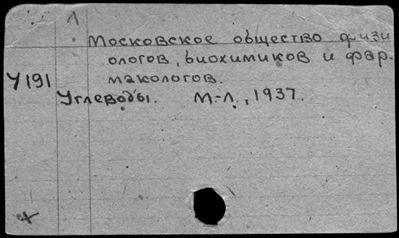 Московское общество физи
ологов, биохимиков и фар.
макологов.
У191
Углеводы. М-Л., 1937.